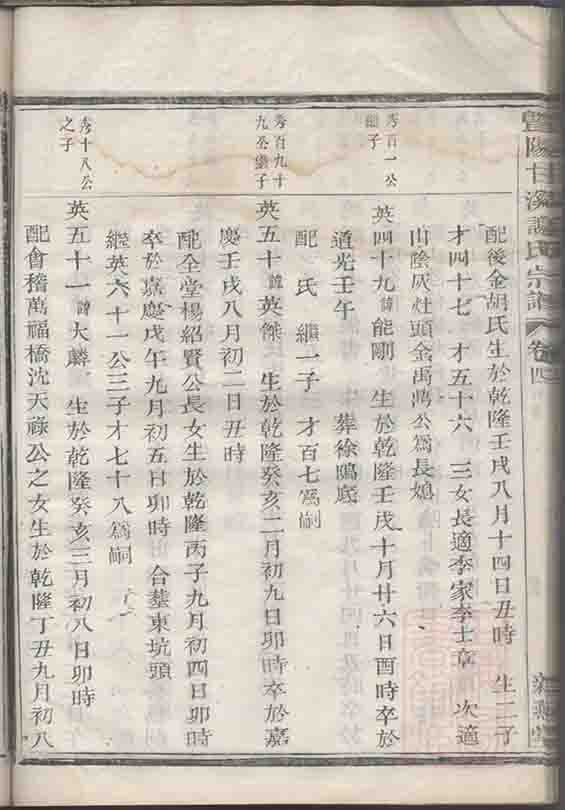 暨陽甘溪謝氏宗譜 卷四
配後金胡氏生於乾隆壬戌八月十四日丑時 生二子
才四十七 才五十六 三女長適李家李士章 次適
山陰灰灶頭金禹鴻公爲長媳
秀百一公
繼子
英四十九諱能剛 生於乾隆壬戌十月廿六日酉時卒於
道光壬午 葬徐鳴底
配 氏 繼一子 才百七爲嗣
秀百九十
九公繼子
英五十諱英傑 生於乾隆癸亥二月初九日卯時卒於嘉
慶壬戌八月初二日丑時
配全堂楊紹賢公長女生於乾隆丙子九月初四日卯時
卒於嘉慶戊午九月初五日卯時 合塟東坑頭
繼英六十一公三子才七十八爲嗣
秀十八公
之子
英五十一諱大麟 生於乾隆癸亥三月初八日卯時
配會稽萬福橋沈天祿公之女生於乾隆丁丑九月初八